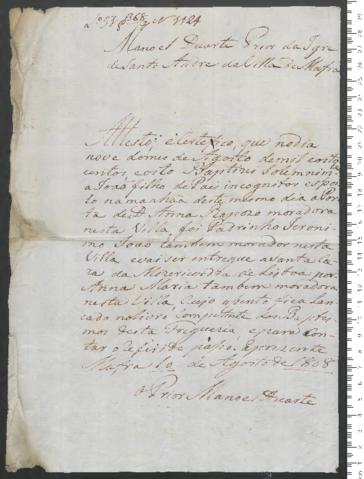 Manoel Duarte Prior da Igrª
de Santo Andre da Villa de Mafra
Attesto, e Certefico, que no dia
nove do mes de Agosto de mil e oito
centos, e oito Baptizei Solemnim.
a João filho de Pais incognitos expos
to na manhãa deste mesmo dia a Por
ta de D. Anna Raposo moradora
nesta Villa, foi Padrinho Jeroni
mo João tambem morador nesta
Villa e vai ser entregue a Santa Ca
za da Mizericordia de Lisboa por
Anna Maria tambem moradora
nesta Villa Cujo asento fica lan
cado no livro Competente dos Baptes
mos desta Freguezia e para Cons
tar o refirido passo o prezente
Mafra de Agosto de 1808
O Prior Manoel Duarte